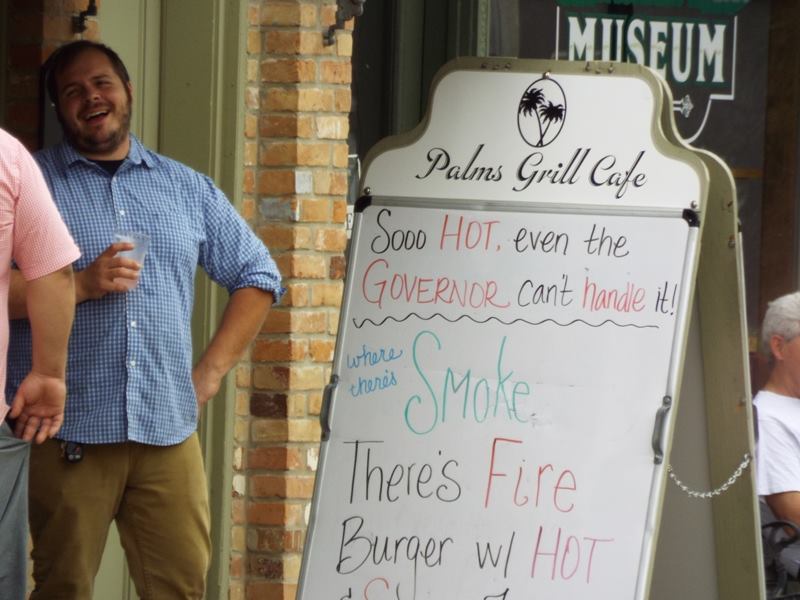 MUSEUM
Palms Grill Cafe
Sooo HOT, even the
GOVERNOR can't handle it!
where
there's
Smoke
There's Fire
Burger w/ HOT